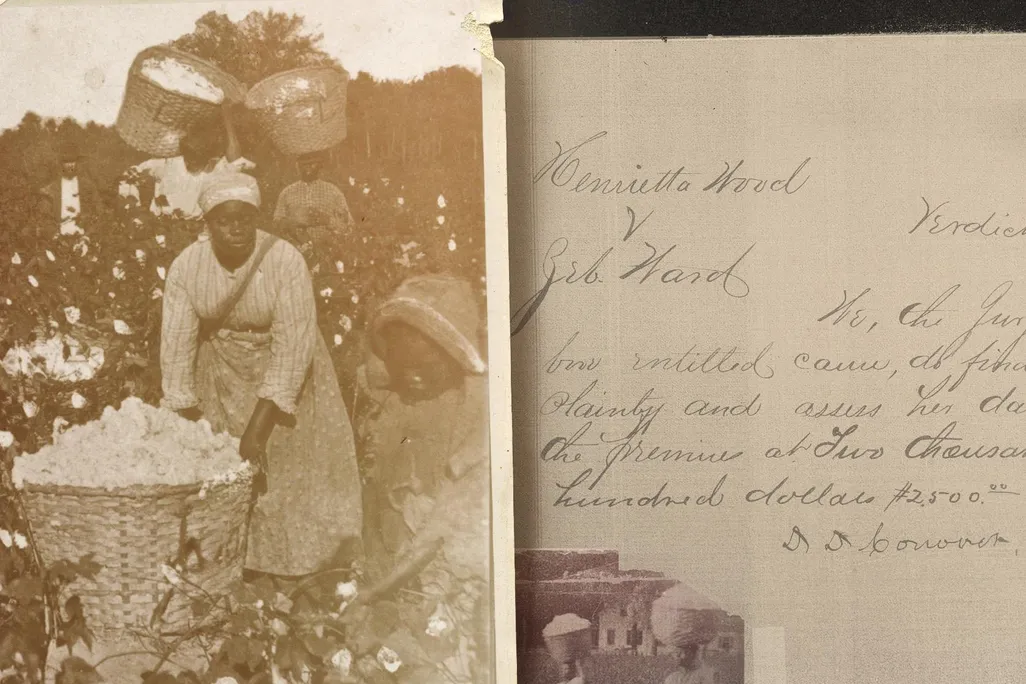 Henrietta Wood
V
Zeb. Ward
Verdic
We, the Jur
bov entitled cause, do find
Plaintf and assess her da
the premises at Two thousan
hundred dollars $2,500.00
D D Conover